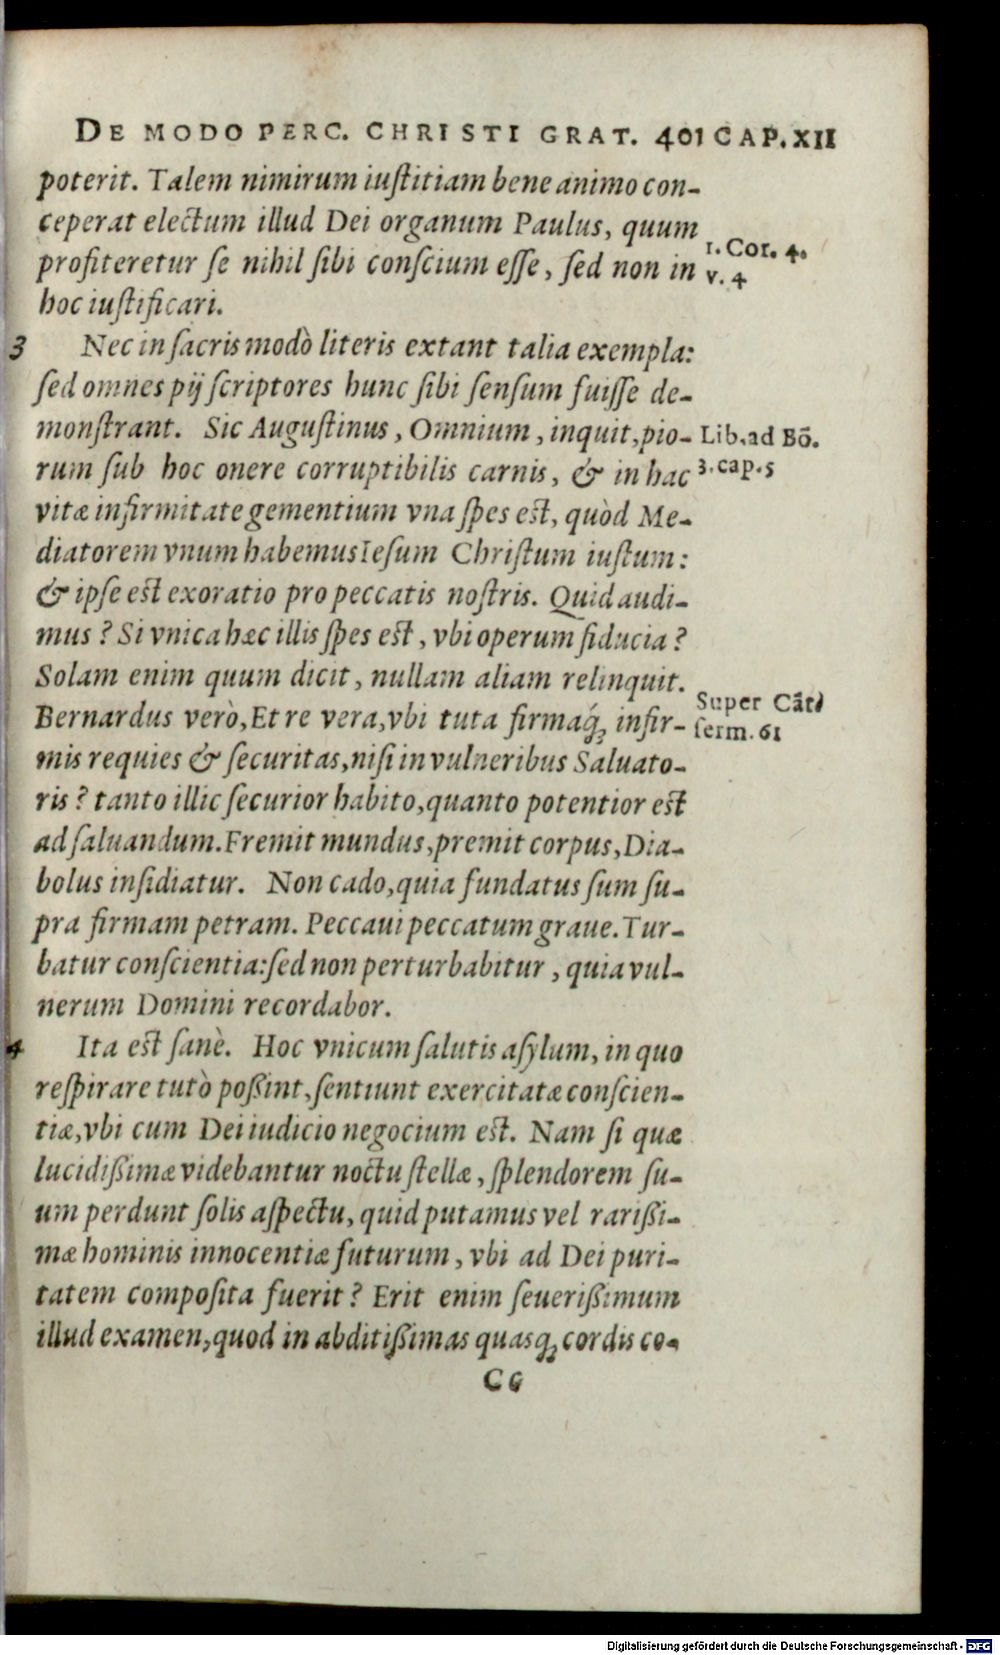 DE MODO PERC. CHRISTI GRAT. 401 CAP. XII
poterit. Talem nimirum iustitiam bene animo con-
ceperat electum illud Dei organum Paulus, quum
profiteretur se nihil sibi conscium esse, sed non in
hoc iustificari.
1. Cor. 4.
v. 4
3 Nec in sacris modò literis extant talia exempla:
sed omnes pij scriptores hunc sibi sensum fuisse de-
monstrant. Sic Augustinus, Omnium, inquit, pio-
rum sub hoc onere corruptibilis carnis, & in hac
Lib. ad Bō.
3. cap. 5
vitæ infirmitate gementium vna spes est, quòd Me-
diatorem vnum habemus Iesum Christum iustum:
& ipse est exoratio pro peccatis nostris. Quid audi-
mus? Si vnica hæc illis spes est, vbi operum fiducia?
Solam enim quum dicit, nullam aliam relinquit.
Bernardus verò, Et re vera, vbi tuta firmaq́ꝫ infir-
Super Cāti
serm. 61
mis requies & securitas, nisi in vulneribus Saluato-
ris? tanto illic securior habito, quanto potentior est
ad saluandum. Fremit mundus, premit corpus, Dia-
bolus insidiatur. Non cado, quia fundatus sum su-
pra firmam petram. Peccaui peccatum graue. Tur-
batur conscientia: sed non perturbabitur, quia vul-
nerum Domini recordabor.
4 Ita est sanè. Hoc vnicum salutis asylum, in quo
respirare tutò poßint, sentiunt exercitatæ conscien-
tiæ, vbi cum Dei iudicio negocium est. Nam si quæ
lucidißimæ videbantur noctu stellæ, splendorem su-
um perdunt solis aspectu, quid putamus vel rarißi-
mæ hominis innocentiæ futurum, vbi ad Dei puri-
tatem composita fuerit? Erit enim seuerißimum
illud examen, quod in abditißimas quasqꝫ cordis co-
CC
Digitalisierung gefördert durch die Deutsche Forschungsgemeinschaft - DFG